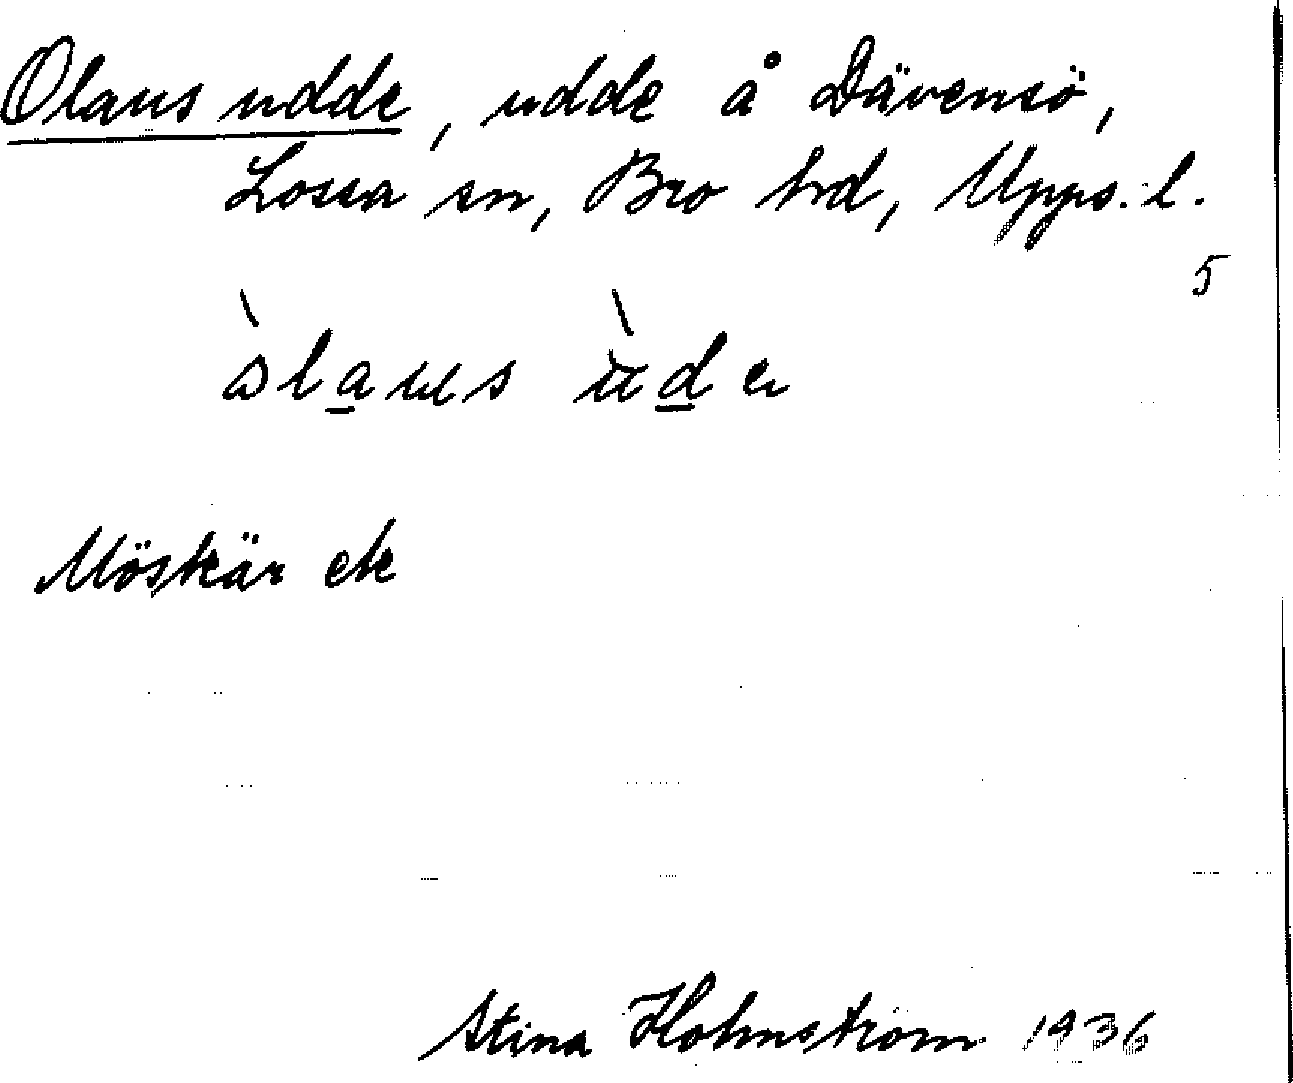 Olaus udde, udde å Dävensö,
Lossa sn, Bro hrd, Upps. l.
5
òlaus ùde
Möskär ek
Stina Holmström 1936